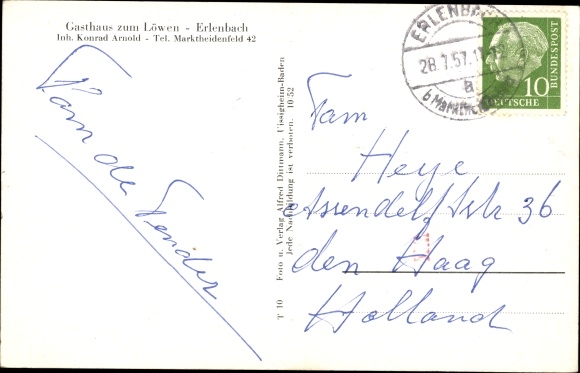 Gasthaus zum Löwen - Erlenbach
Inh. Konrad Arnold - Tel. Marktheidenfeld 42
Fam
Heye
Assendelftstr 36
den Haag
Holland
T 10 Foto u. Verlag Alfred Dittmann, Uissigheim-Baden
jede Nachbildung ist verboten. 10 52
ERLENB
28.7.57.1
a
b Markthe
10
DEUTSCHE
BUNDESPOST
Fam de